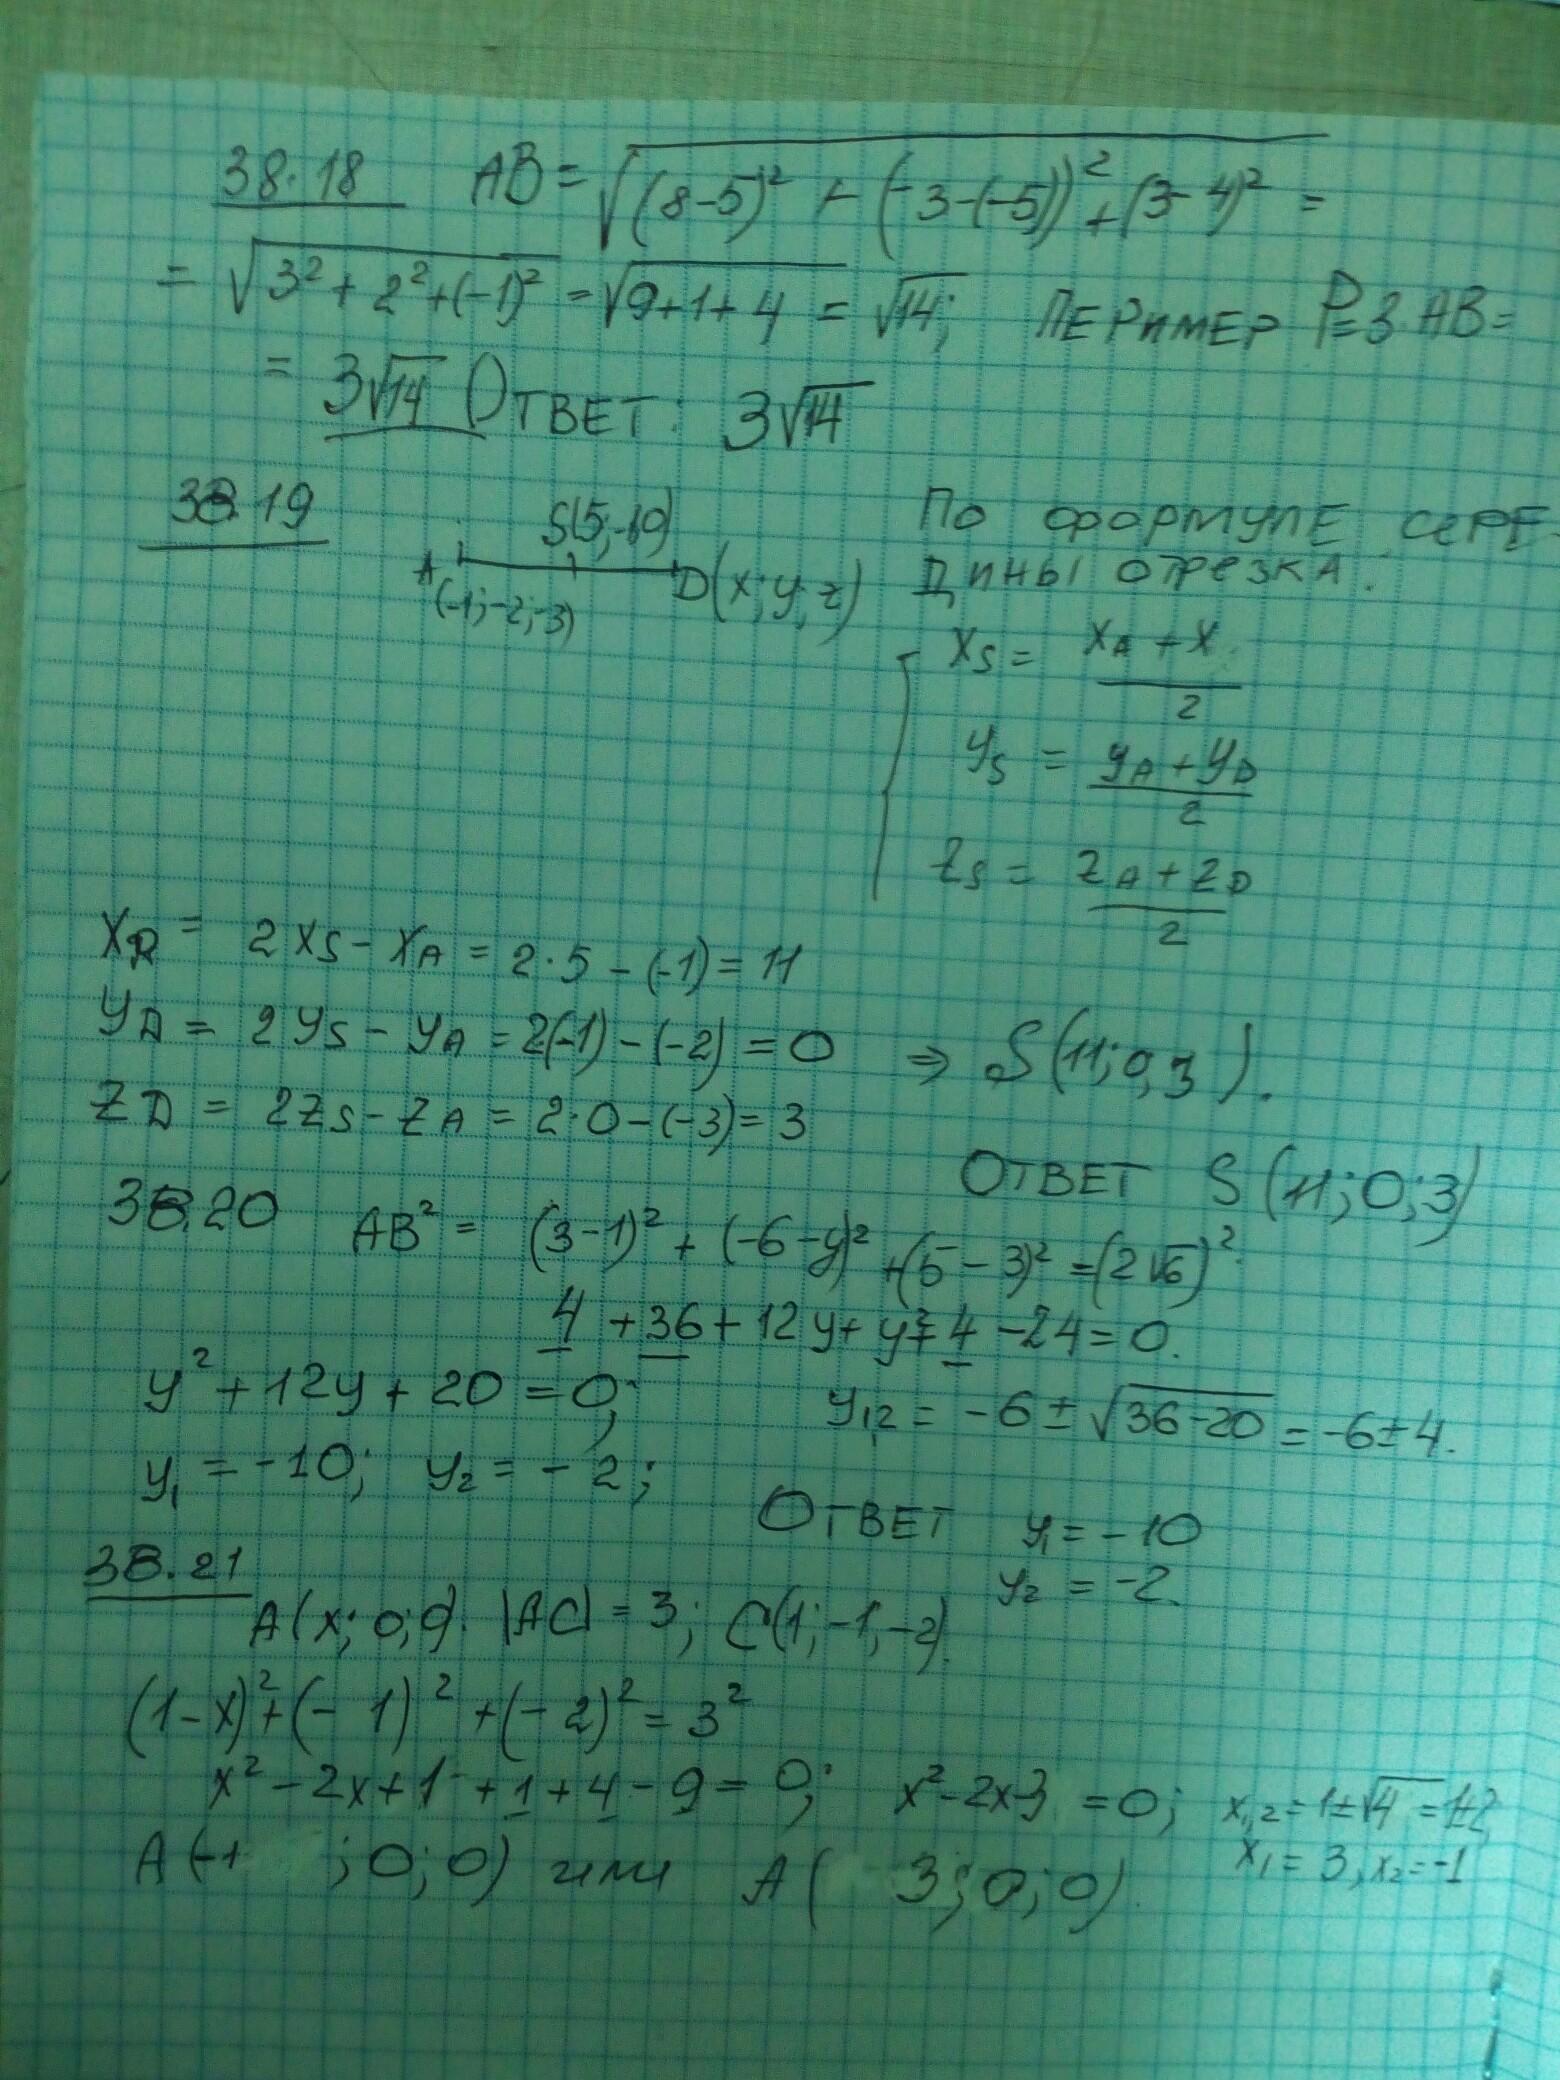 38.18 AB = √((8-5)² + (-3-(-5))² + (3-4)²) =
= √(3² + 2² + (-1)²) = √(9+1+4) = √14; ПЕРИМЕР P=3·AB=
= 3√14 ОТВЕТ: 3√14
38.19 S(5;-1;0) По формуле сере-
A D(x;y,z) дины отрезка.
(-1;-2;-3)
x_S = (x_A + x)/2
y_S = (y_A + y_D)/2
z_S = (z_A + z_D)/2
x_D = 2x_S - x_A = 2·5 - (-1) = 11
y_D = 2y_S - y_A = 2(-1) - (-2) = 0 ⇒ S(11;0,3).
z_D = 2z_S - z_A = 2·0 - (-3) = 3
ОТВЕТ S(11;0;3)
38.20 AB² = (3-1)² + (-6-y)² + (5-3)² = (2√6)².
4 + 36 + 12y + y² + 4 - 24 = 0.
y² + 12y + 20 = 0; y₁,₂ = -6 ± √(36-20) = -6±4.
y₁ = -10; y₂ = -2;
ОТВЕТ y₁ = -10
y₂ = -2.
38.21
A(x; 0; 0). |AC| = 3; C(1; -1, -2).
(1-x)² + (-1)² + (-2)² = 3²
x² - 2x + 1 + 1 + 4 - 9 = 0; x² - 2x - 3 = 0; x₁,₂ = 1±√4 = 1±2,
x₁ = 3, x₂ = -1
A(-1; 0; 0) или A(3; 0; 0).